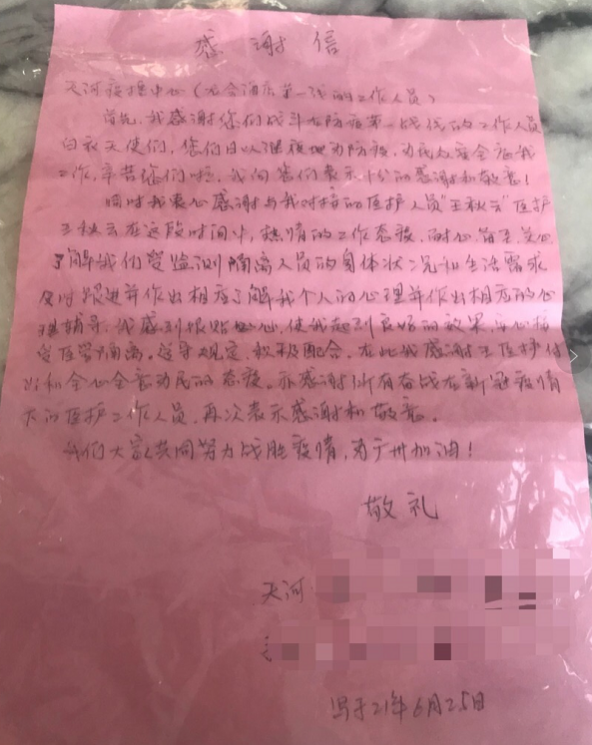 感谢信
天河疫控中心( 酒店第一线的工作人员)
首先,我感谢您们战斗在防疫第一战线的工作人员
白衣天使们,您们日以继夜地为防疫,为民众安全
工作,辛苦您们啦,我向您们表示十分的感谢和敬意!
同时我衷心感谢与我对接的医护人员"王秋云"医护
王秋云在这段时间中,热情的工作态度,耐心、 关心
了解我们受监测隔离人员的身体状况和生活需求
及时跟进并作出相应了解我个人的心理并作出相应的心
理辅导,我感到很贴心,使我起到良好的效果,安心接
受医学隔离。遵守规定,积极配合,在此我感谢王医护付
出和全心全意为民的态度。亦感谢所有奋战在新冠疫情
下的医护工作人员,再次表示感谢和敬意。
我们大家共同努力战胜疫情,为广州加油!
敬礼
天河
写于21年6月25日